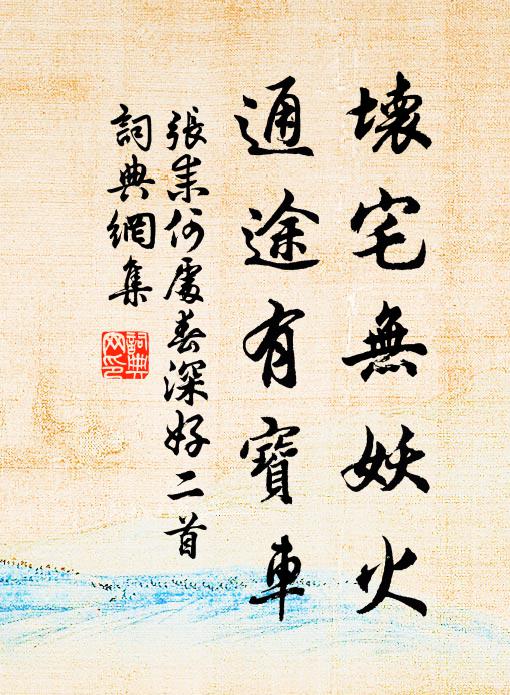 壞宅無妖火
通途有寶車
張耒何處春深好二首
詞典網集
詞典
网印